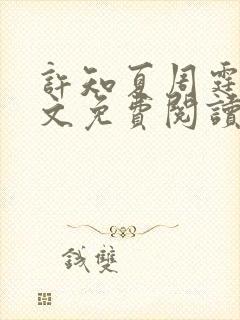 許知夏周霆
文免費閱讀
錢雙